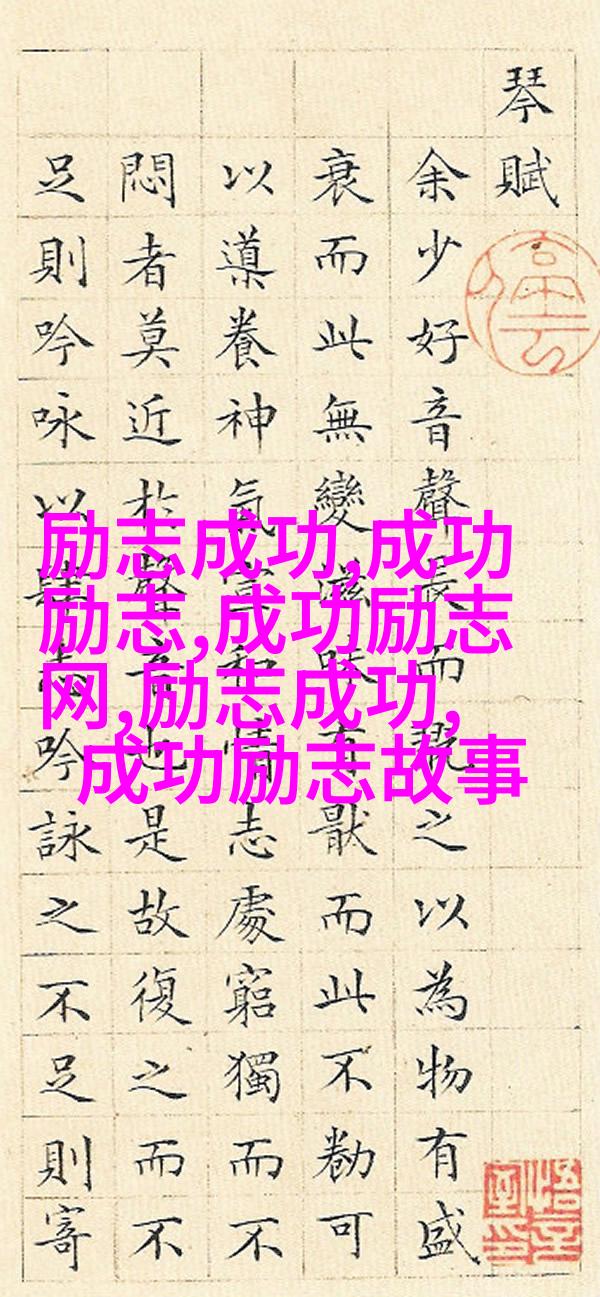 琴賦
余少好音聲長而翫之以為物有盛
衰而此無變滋味有猒而此不勌可
以導養神氣宣和情志處窮獨而不
悶者莫近於聲音也是故復之而不
足則吟咏以肆志吟詠之不足則寄
励志成功,成功
励志,成功励志
网,励志成功,
成功励志故事